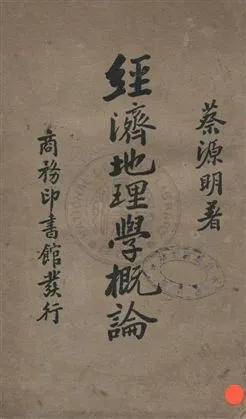 蔡源明著
經濟地理學概論
商務印書館發行